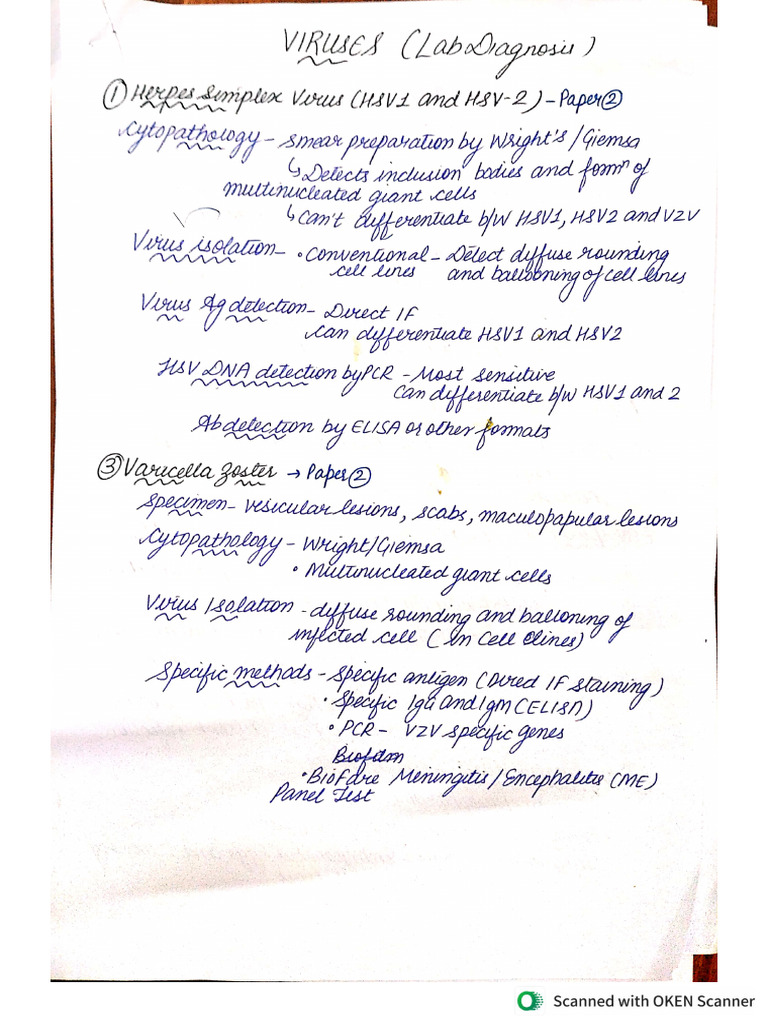 VIRUSES (Lab Diagnosis)
① Herpes Simplex Virus (HSV1 and HSV-2) - Paper②
Cytopathology - smear preparation by Wright's / Giemsa
↳ Detects inclusion bodies and formⁿ of
multinucleated giant cells
↳ can't differentiate b/w HSV1, HSV2 and VZV
Virus isolation - • Conventional - Detect diffuse rounding
cell lines and ballooning of cell lines
Virus Ag detection - Direct IF
Can differentiate HSV1 and HSV2
HSV DNA detection by PCR - Most sensitive
Can differentiate b/w HSV1 and 2
Ab detection by ELISA or other formats
③ Varicella zoster → Paper②
Specimen - vesicular lesions, scabs, maculopapular lesions
Cytopathology - Wright/Giemsa
• Multinucleated giant cells
Virus Isolation - diffuse rounding and balloning of
infected cell (In Cell lines)
Specific methods - Specific antigen (Direct IF staining)
• Specific IgG and IgM (ELISA)
• PCR - VZV specific genes
• BioFire Meningitis / Encephalitis (ME)
Panel Test
Scanned with OKEN Scanner